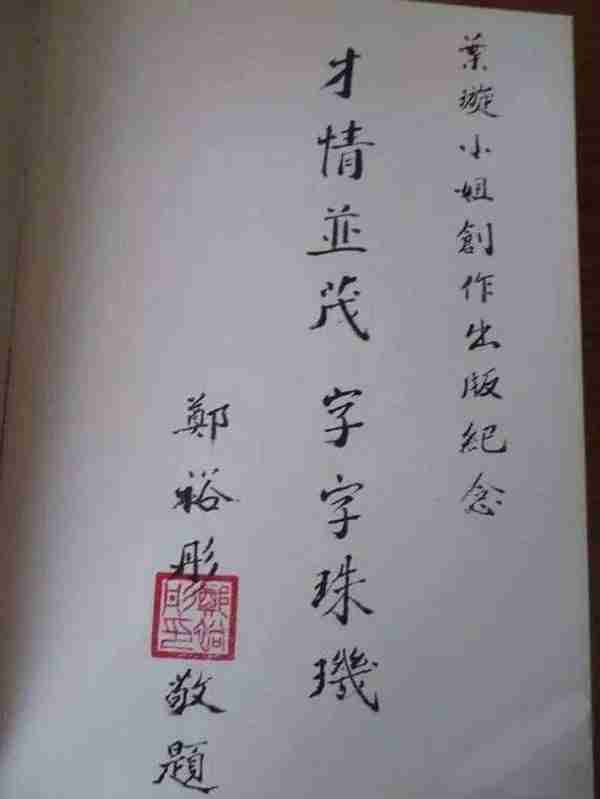 葉璇小姐創作出版紀念
才情並茂 字字珠璣
鄭裕彤 敬題
鄭裕彤印